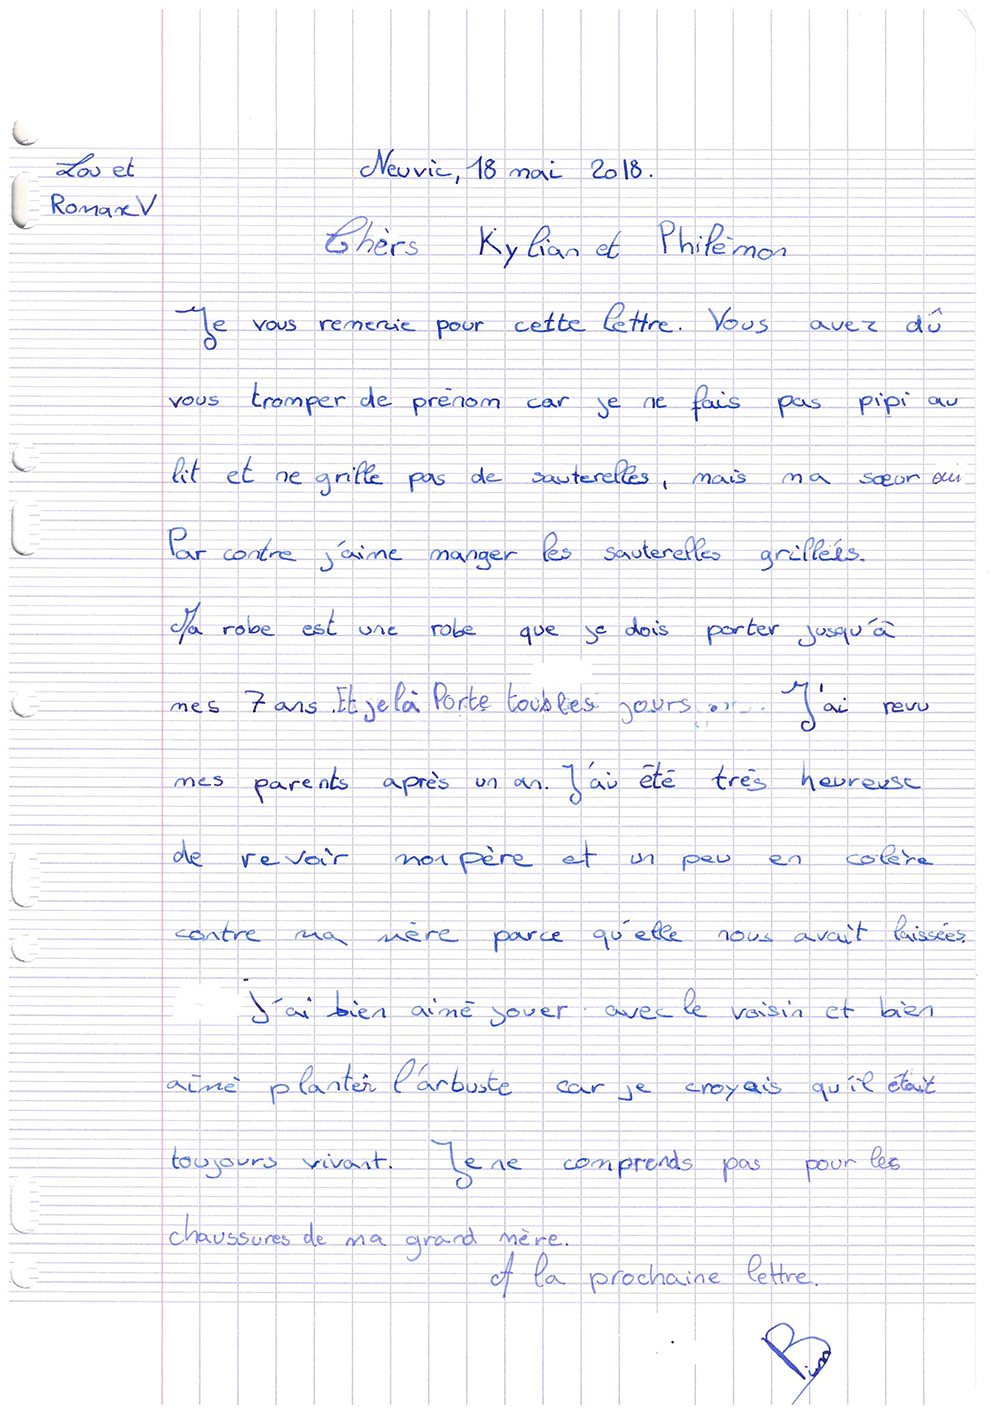 Lou et
Romane V
Neuvic, 18 mai 2018.
Chèrs Kylian et Philémon
Je vous remercie pour cette lettre. Vous avez dû
vous tromper de prénom car je ne fais pas pipi au
lit et ne grille pas de sauterelles, mais ma sœur oui
Par contre j'aime manger les sauterelles grillées.
Ma robe est une robe que je dois porter jusqu'à
mes 7 ans. Et je là Porte tous les jours J'ai revu
mes parents après un an. J'ai été très heureuse
de revoir mon père et un peu en colère
contre ma mère parce qu'elle nous avait laissées.
J'ai bien aimé jouer avec le voisin et bien
aimé planter l'arbuste car je croyais qu'il était
toujours vivant. Je ne comprends pas pour les
chaussures de ma grand mère.
A la prochaine lettre.